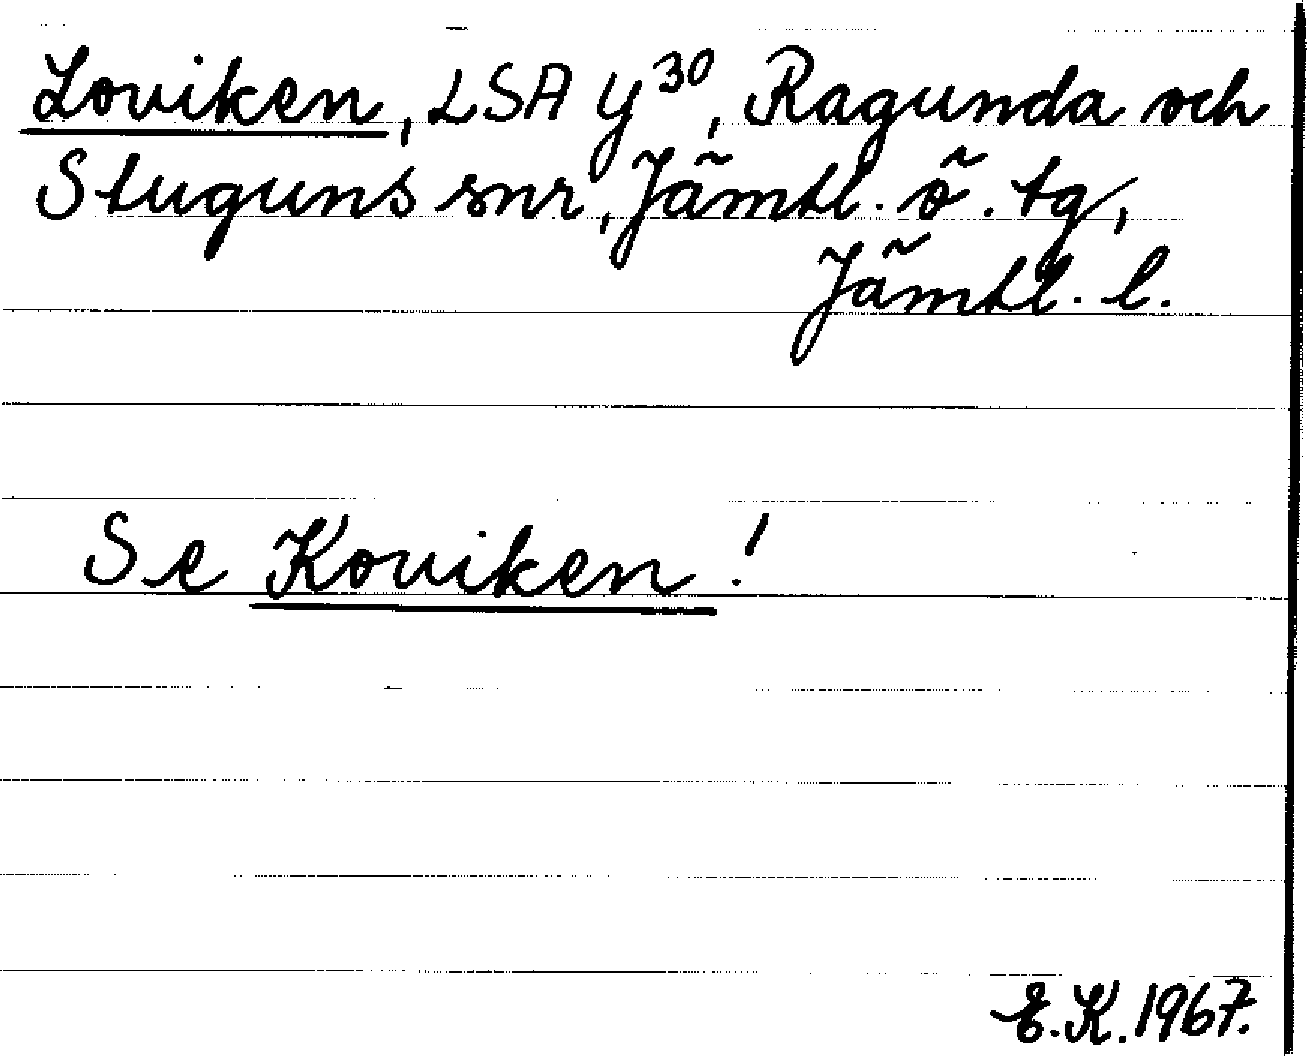 Loviken, LSA Y³⁰, Ragunda och
Stuguns snr, Jämtl. ö. tg,
Jämtl. l.
Se Koviken!
E.K. 1967.